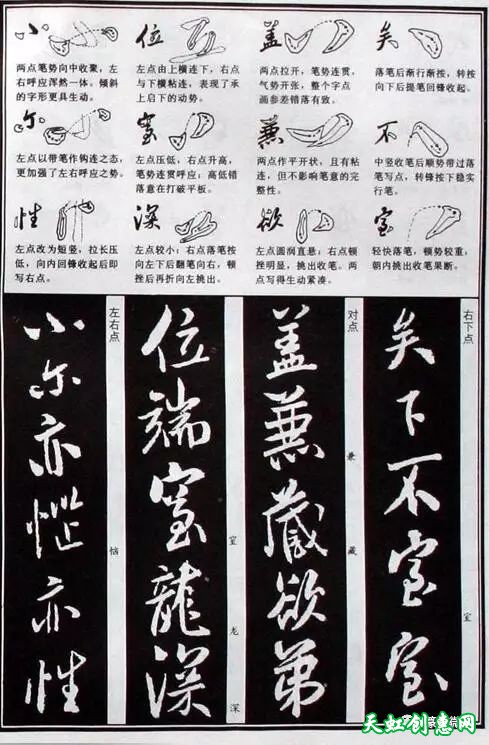 小
两点笔势向中收聚，左
右呼应浑然一体。倾斜
的字形更具生动。
位
左点由上横连下，右点
与下横粘连，表现了承
上启下的动势。
盖
两点拉开，笔势连贯，
气势开张，整个字点
画参差错落有致。
矣
落笔后渐行渐按，转按
向下后提笔回锋收起。
尔
左点以带笔作钩连之态，
更加强了左右呼应之势。
室
左点压低，右点升高，
笔势连贯呼应；高低错
落意在打破平板。
兼
两点作平开状，且有粘
连，但不影响笔意的完
整性。
不
中竖收笔后顺势带过落
笔写点，转锋按下稳实
行笔。
性
左点改为短竖，拉长压
低，向内回锋收起后即
写右点。
深
左点较小；右点落笔按
向左下后翻笔向右，顿
挫后再折向左挑出。
欲
左点圆润直悬；右点顿
挫明显，挑出收笔。两
点写得生动紧凑。
室
轻快落笔，顿势较重，
朝内挑出收笔果断。
小尔亦恼亦性
左右点
恼
位端室龍深
室 龙 深
盖兼藏欲弟
对点
兼 藏
矣下不室室
右下点
室
天虹创意网